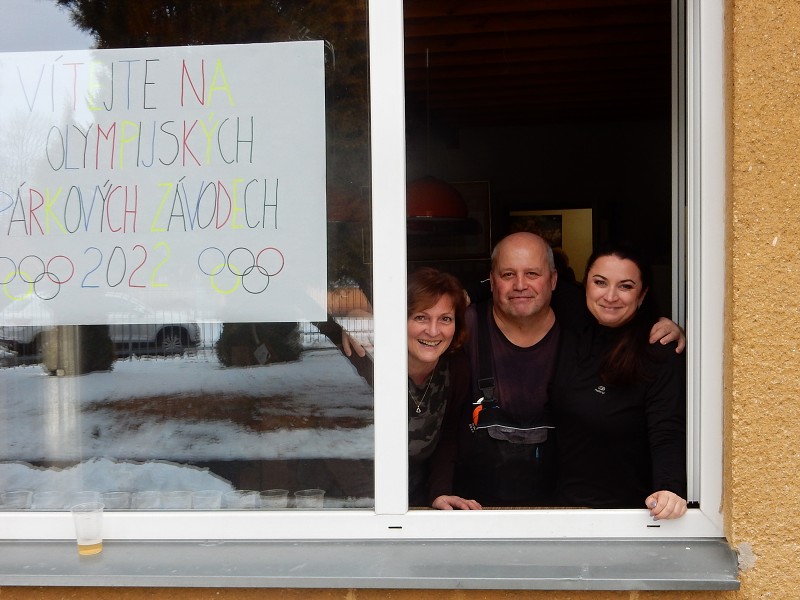 VÍTEJTE NA
OLYMPIJSKÝCH
PÁRKOVÝCH ZÁVODECH
2022